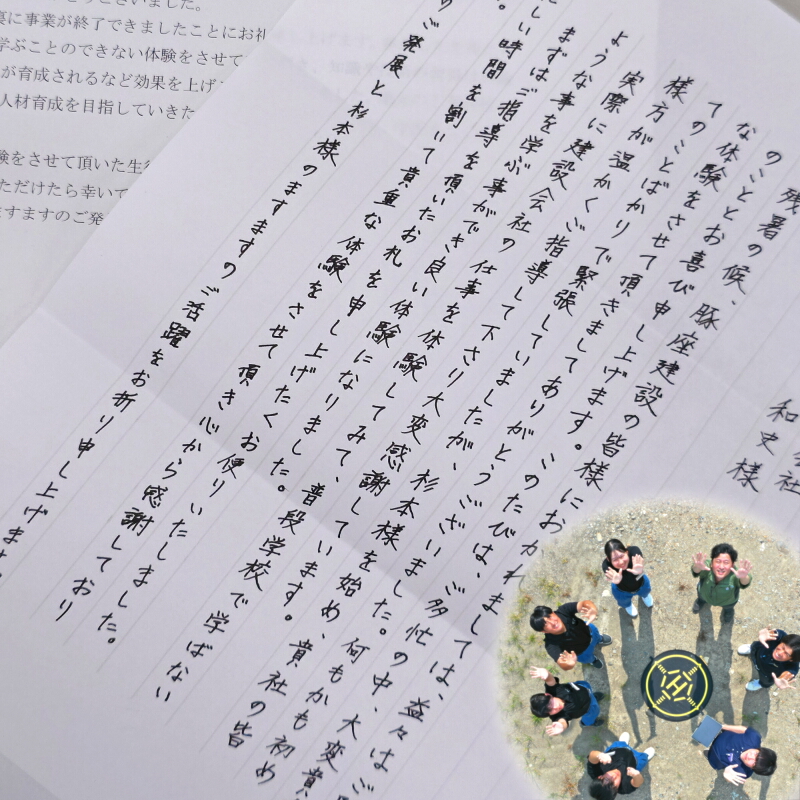 ございました。
に事業が終了できましたことにお礼
学ぶことのできない体験をさせて
が育成されるなど効果を上げ
人材育成を目指していきた
験をさせて頂いた生徒
ただけたら幸いで
ますますのご発
会社
和史様
残暑の候、豚座建設の皆様におかれましては、益々はご
のこととお喜び申し上げます。このたびは、ご多忙の中、大変貴
な体験をさせて頂きましてありがとうございました。何もかも初め
てのことばかりで緊張していましたが、杉本様を始め、貴社の皆
様方が温かくご指導して下さり大変感謝しています。
実際に建設会社の仕事を体験してみて、普段学校で学ばない
ような事を学ぶ事ができ良い体験になりました。
まずはご指導を頂いたお礼を申し上げたくお便りいたしました。
しい時間を割いて貴重な体験をさせて頂き心から感謝しており
。
のご発展と杉本様のますますのご活躍をお祈り申し上げます。
H